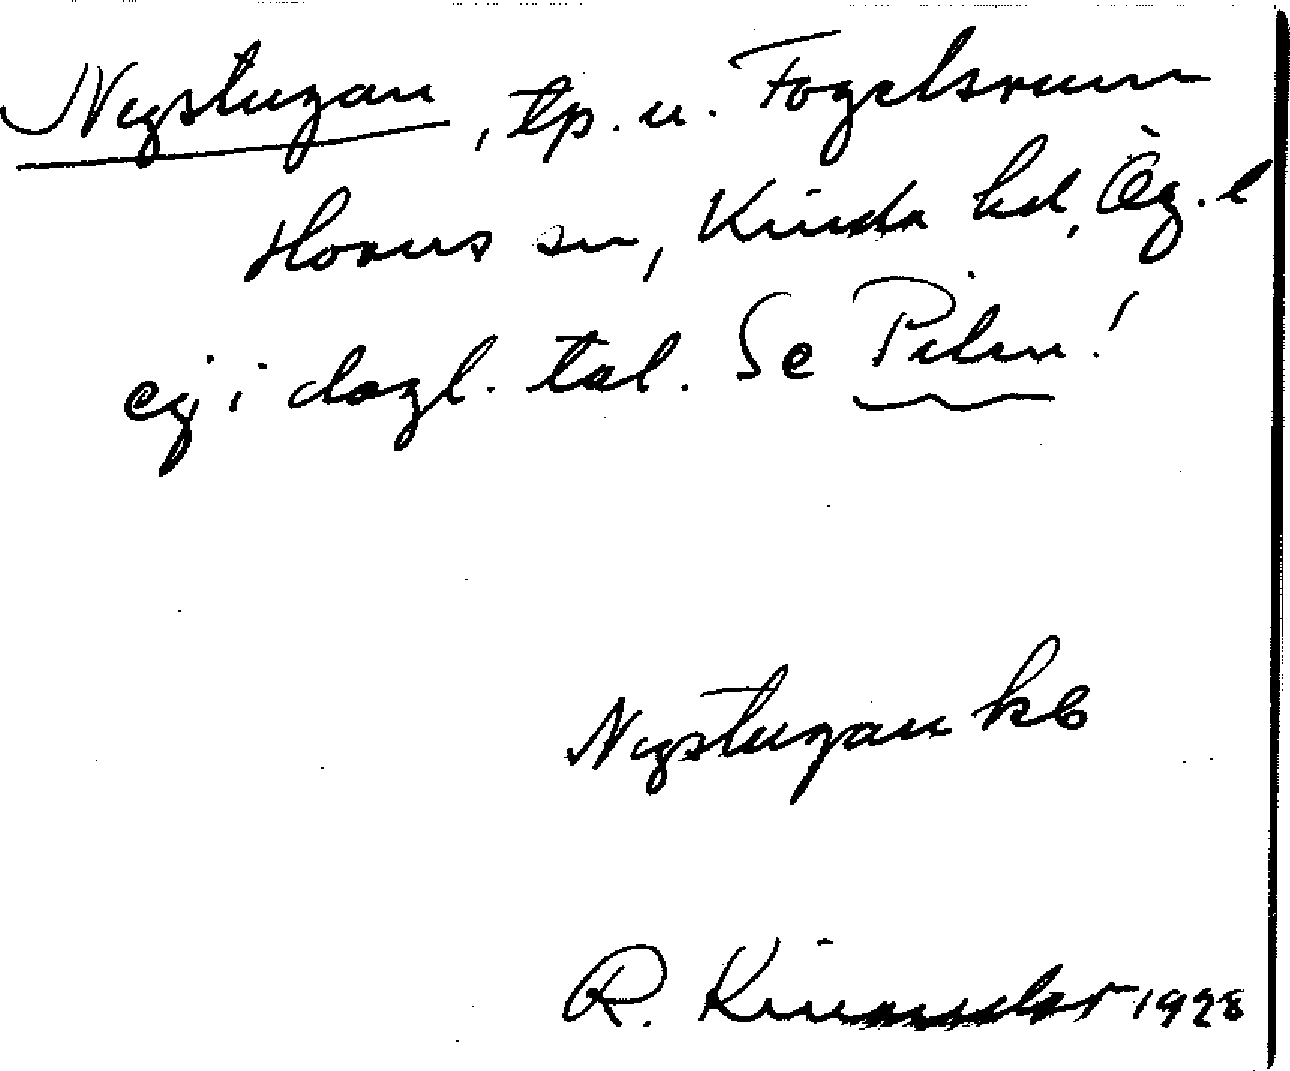 Nystugan, tp. u. Fogelsrum
Horns sn, Kinda hd, Ög. l
ej i dagl. tal. Se Pilen!
Nystugan kb
R. Kinander 1928